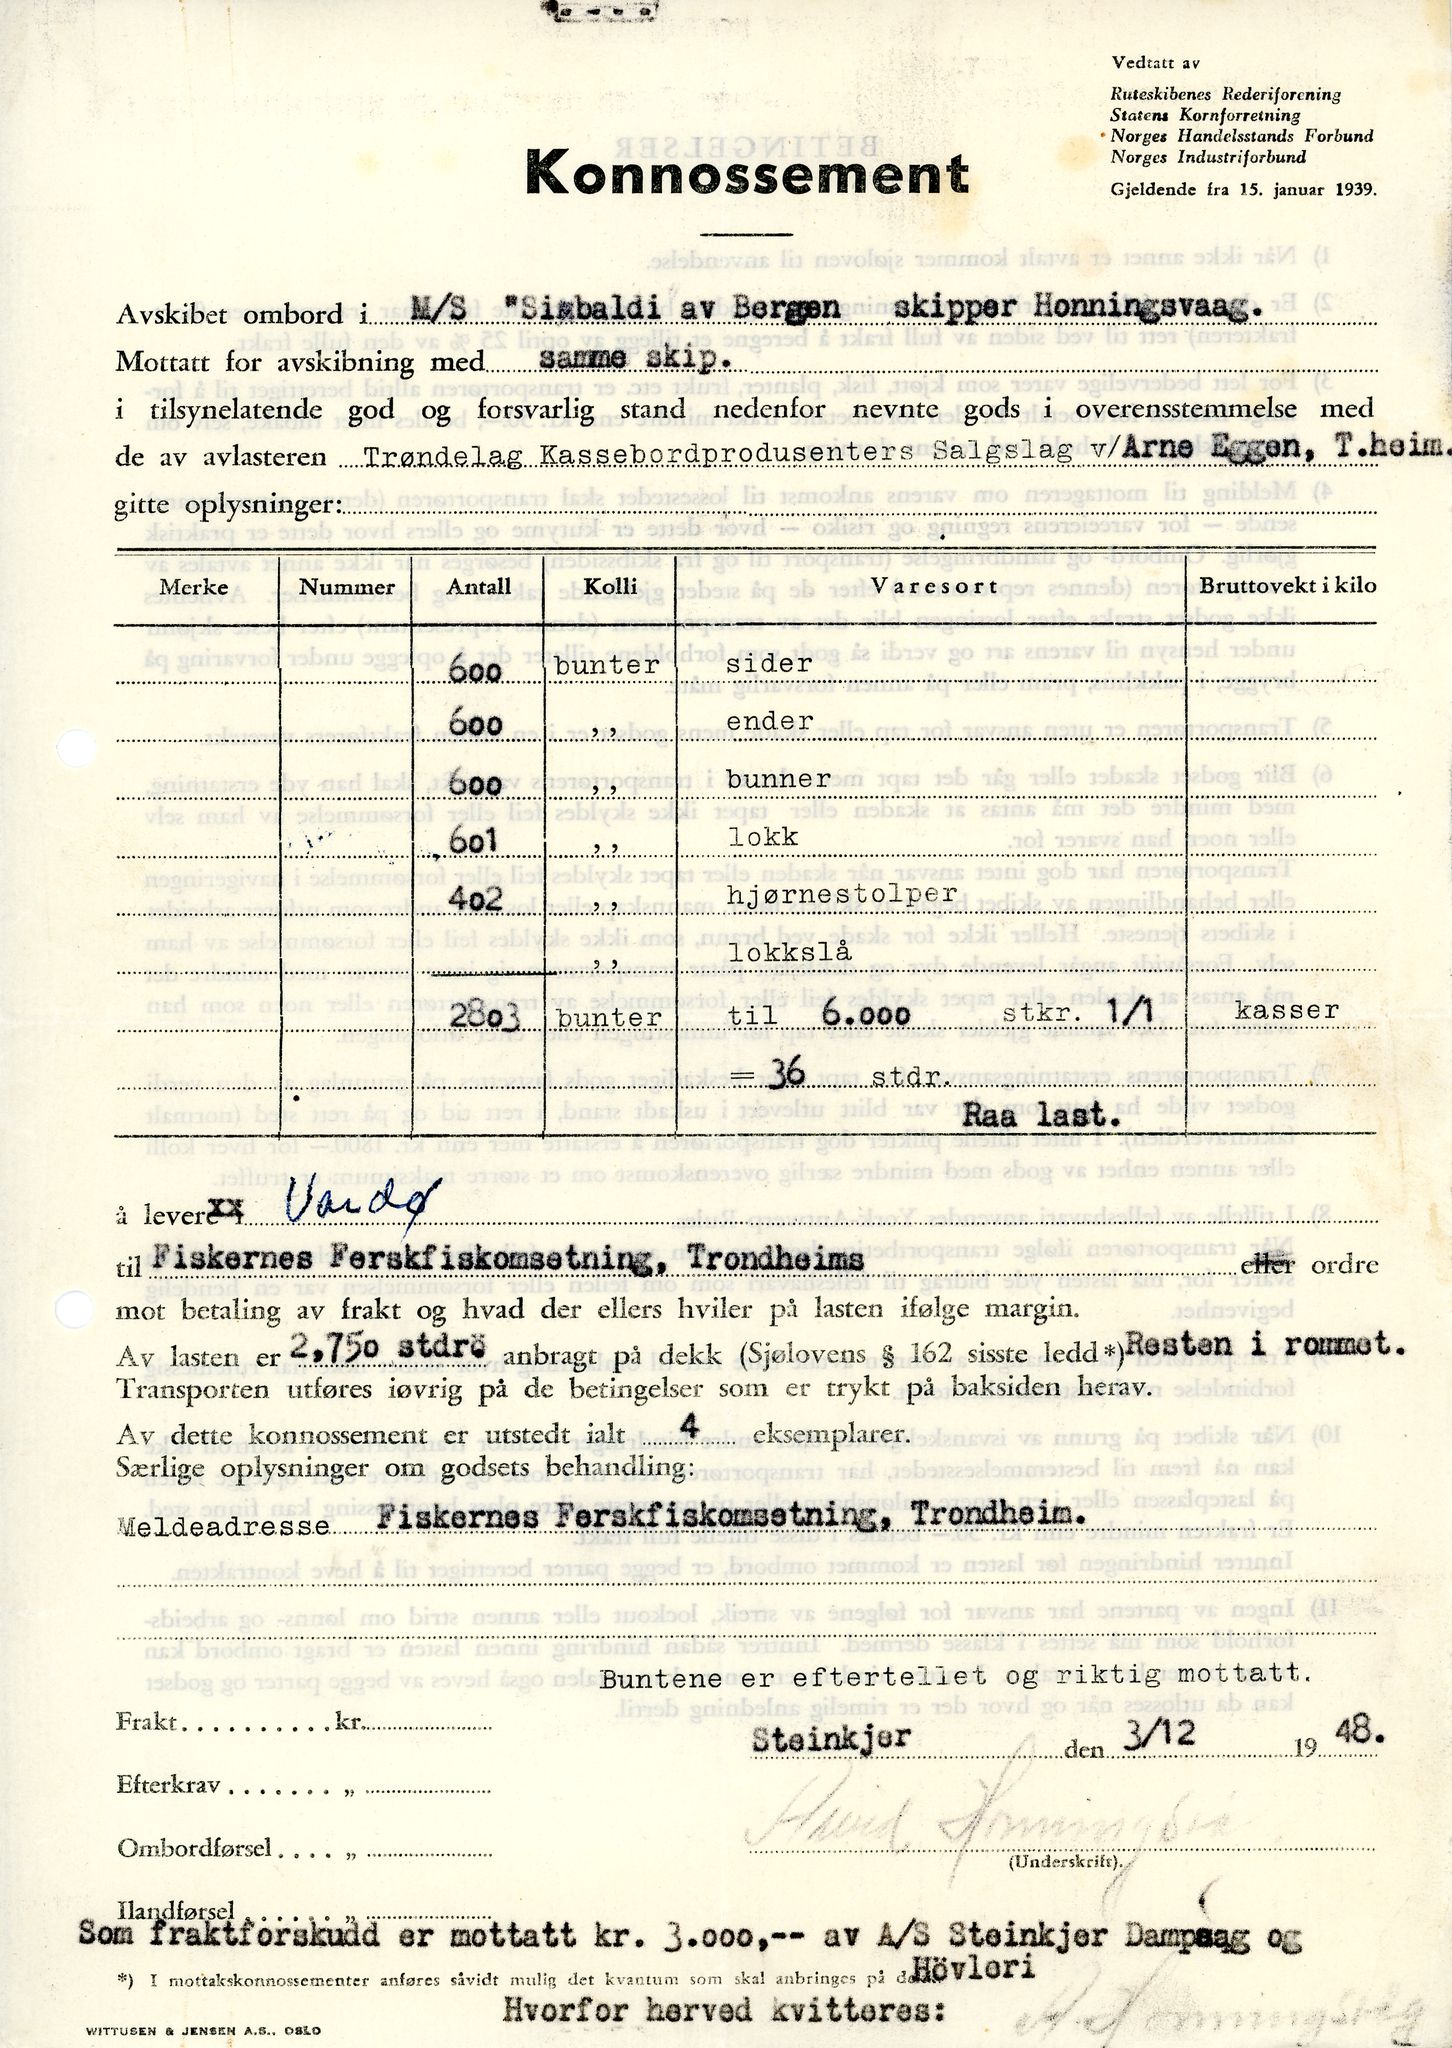 Vedtatt av
Ruteskibenes Rederiforening
Statens Kornforretning
Norges Handelsstands Forbund
Norges Industriforbund
Gjeldende fra 15. januar 1939.
Konnossement
Avskibet ombord i M/S "Sigbaldi av Bergen skipper Honningsvaag.
Mottatt for avskibning med samme skip.
i tilsynelatende god og forsvarlig stand nedenfor nevnte gods i overensstemmelse med
de av avlasteren Trøndelag Kassebordprodusenters Salgslag v/Arne Eggen, T.heim.
gitte oplysninger:
Merke Nummer Antall Kolli Varesort Bruttovekt i kilo
600 bunter sider
600 ,, ender
600 ,, bunner
601 ,, lokk
402 ,, hjørnestolper
,, lokkslå
2803 bunter til 6.000 stkr. 1/1 kasser
= 36 stdr.
Raa last.
å levere xx Vardø
til Fiskernes Ferskfiskomsetning, Trondheims eller ordre
mot betaling av frakt og hvad der ellers hviler på lasten ifølge margin.
Av lasten er 2,750 stdrö anbragt på dekk (Sjølovens § 162 sisste ledd*) Resten i rommet.
Transporten utføres iøvrig på de betingelser som er trykt på baksiden herav.
Av dette konnossement er utstedt ialt 4 eksemplarer.
Særlige oplysninger om godsets behandling:
Meldeadresse Fiskernes Ferskfiskomsetning, Trondheim.
Buntene er eftertellet og riktig mottatt.
Frakt.......... kr.
Steinkjer den 3/12 19 48.
Efterkrav ....... „
Ombordførsel .... „
(Underskrift).
Ilandførsel ...... „
Som fraktforskudd er mottatt kr. 3.000,-- av A/S Steinkjer Dampsag og
Hövleri
*) I mottakskonnossementer anføres såvidt mulig det kvantum som skal anbringes på
Hvorfor herved kvitteres:
WITTUSEN & JENSEN A.S., OSLO